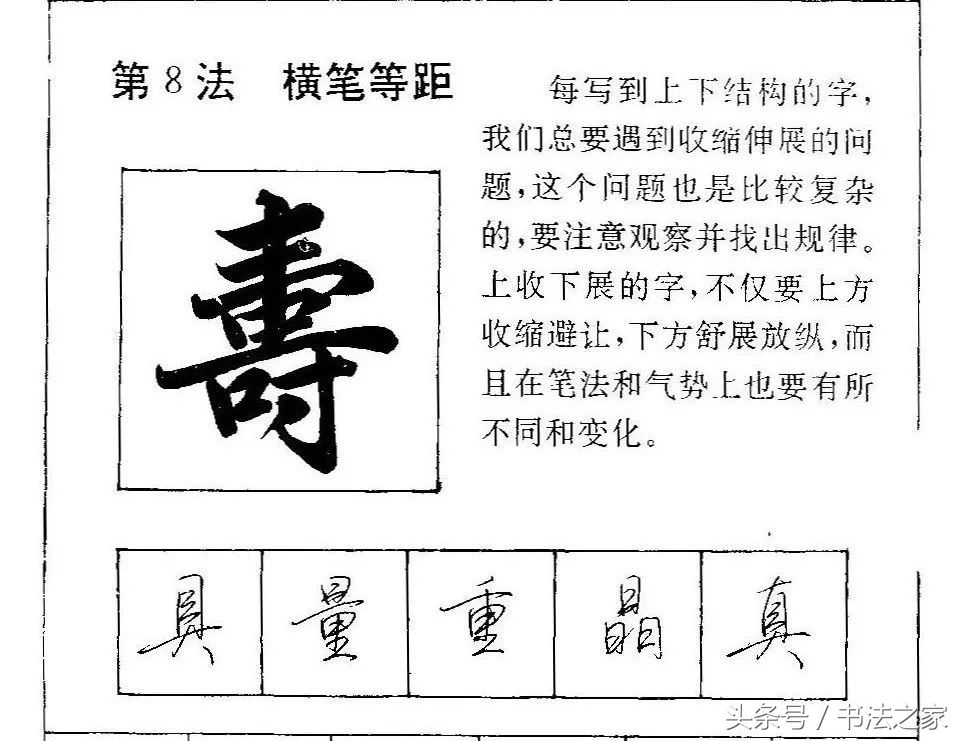 第8法 横笔等距
每写到上下结构的字，
我们总要遇到收缩伸展的问
题，这个问题也是比较复杂
的，要注意观察并找出规律。
上收下展的字，不仅要上方
收缩避让，下方舒展放纵，而
且在笔法和气势上也要有所
不同和变化。
壽
具 量 重 晶 真
头条号 / 书法之家